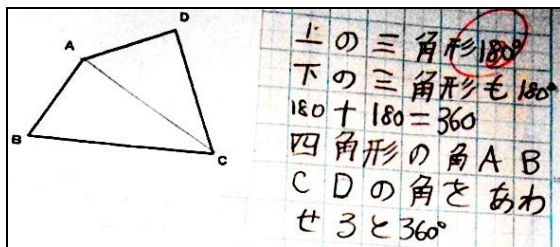 D
A
B
C
上の三角形180°
下の三角形も180°
180+180=360
四角形の角AB
CDの角をあわ
せろと360°